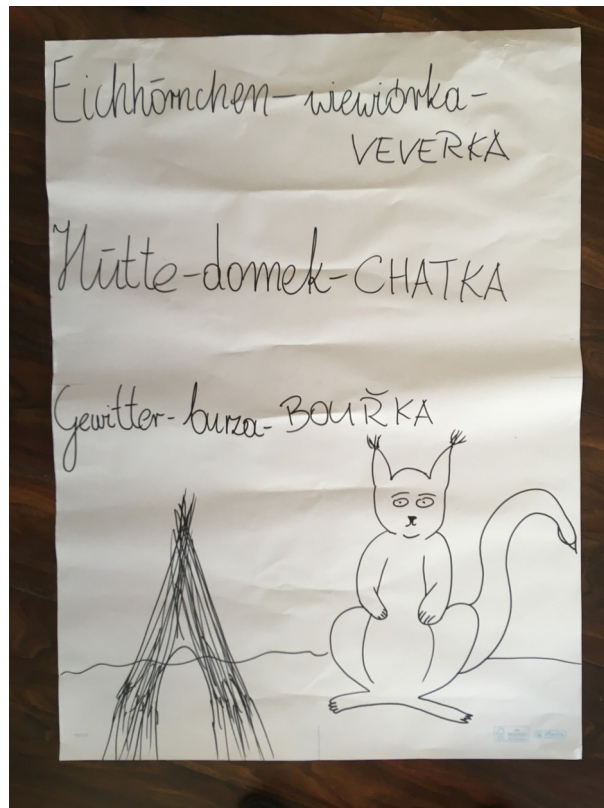 Eichhörnchen-wiewiórka-
VEVERKA
Hütte-domek-CHATKA
Gewitter-burza-BOUŘKA